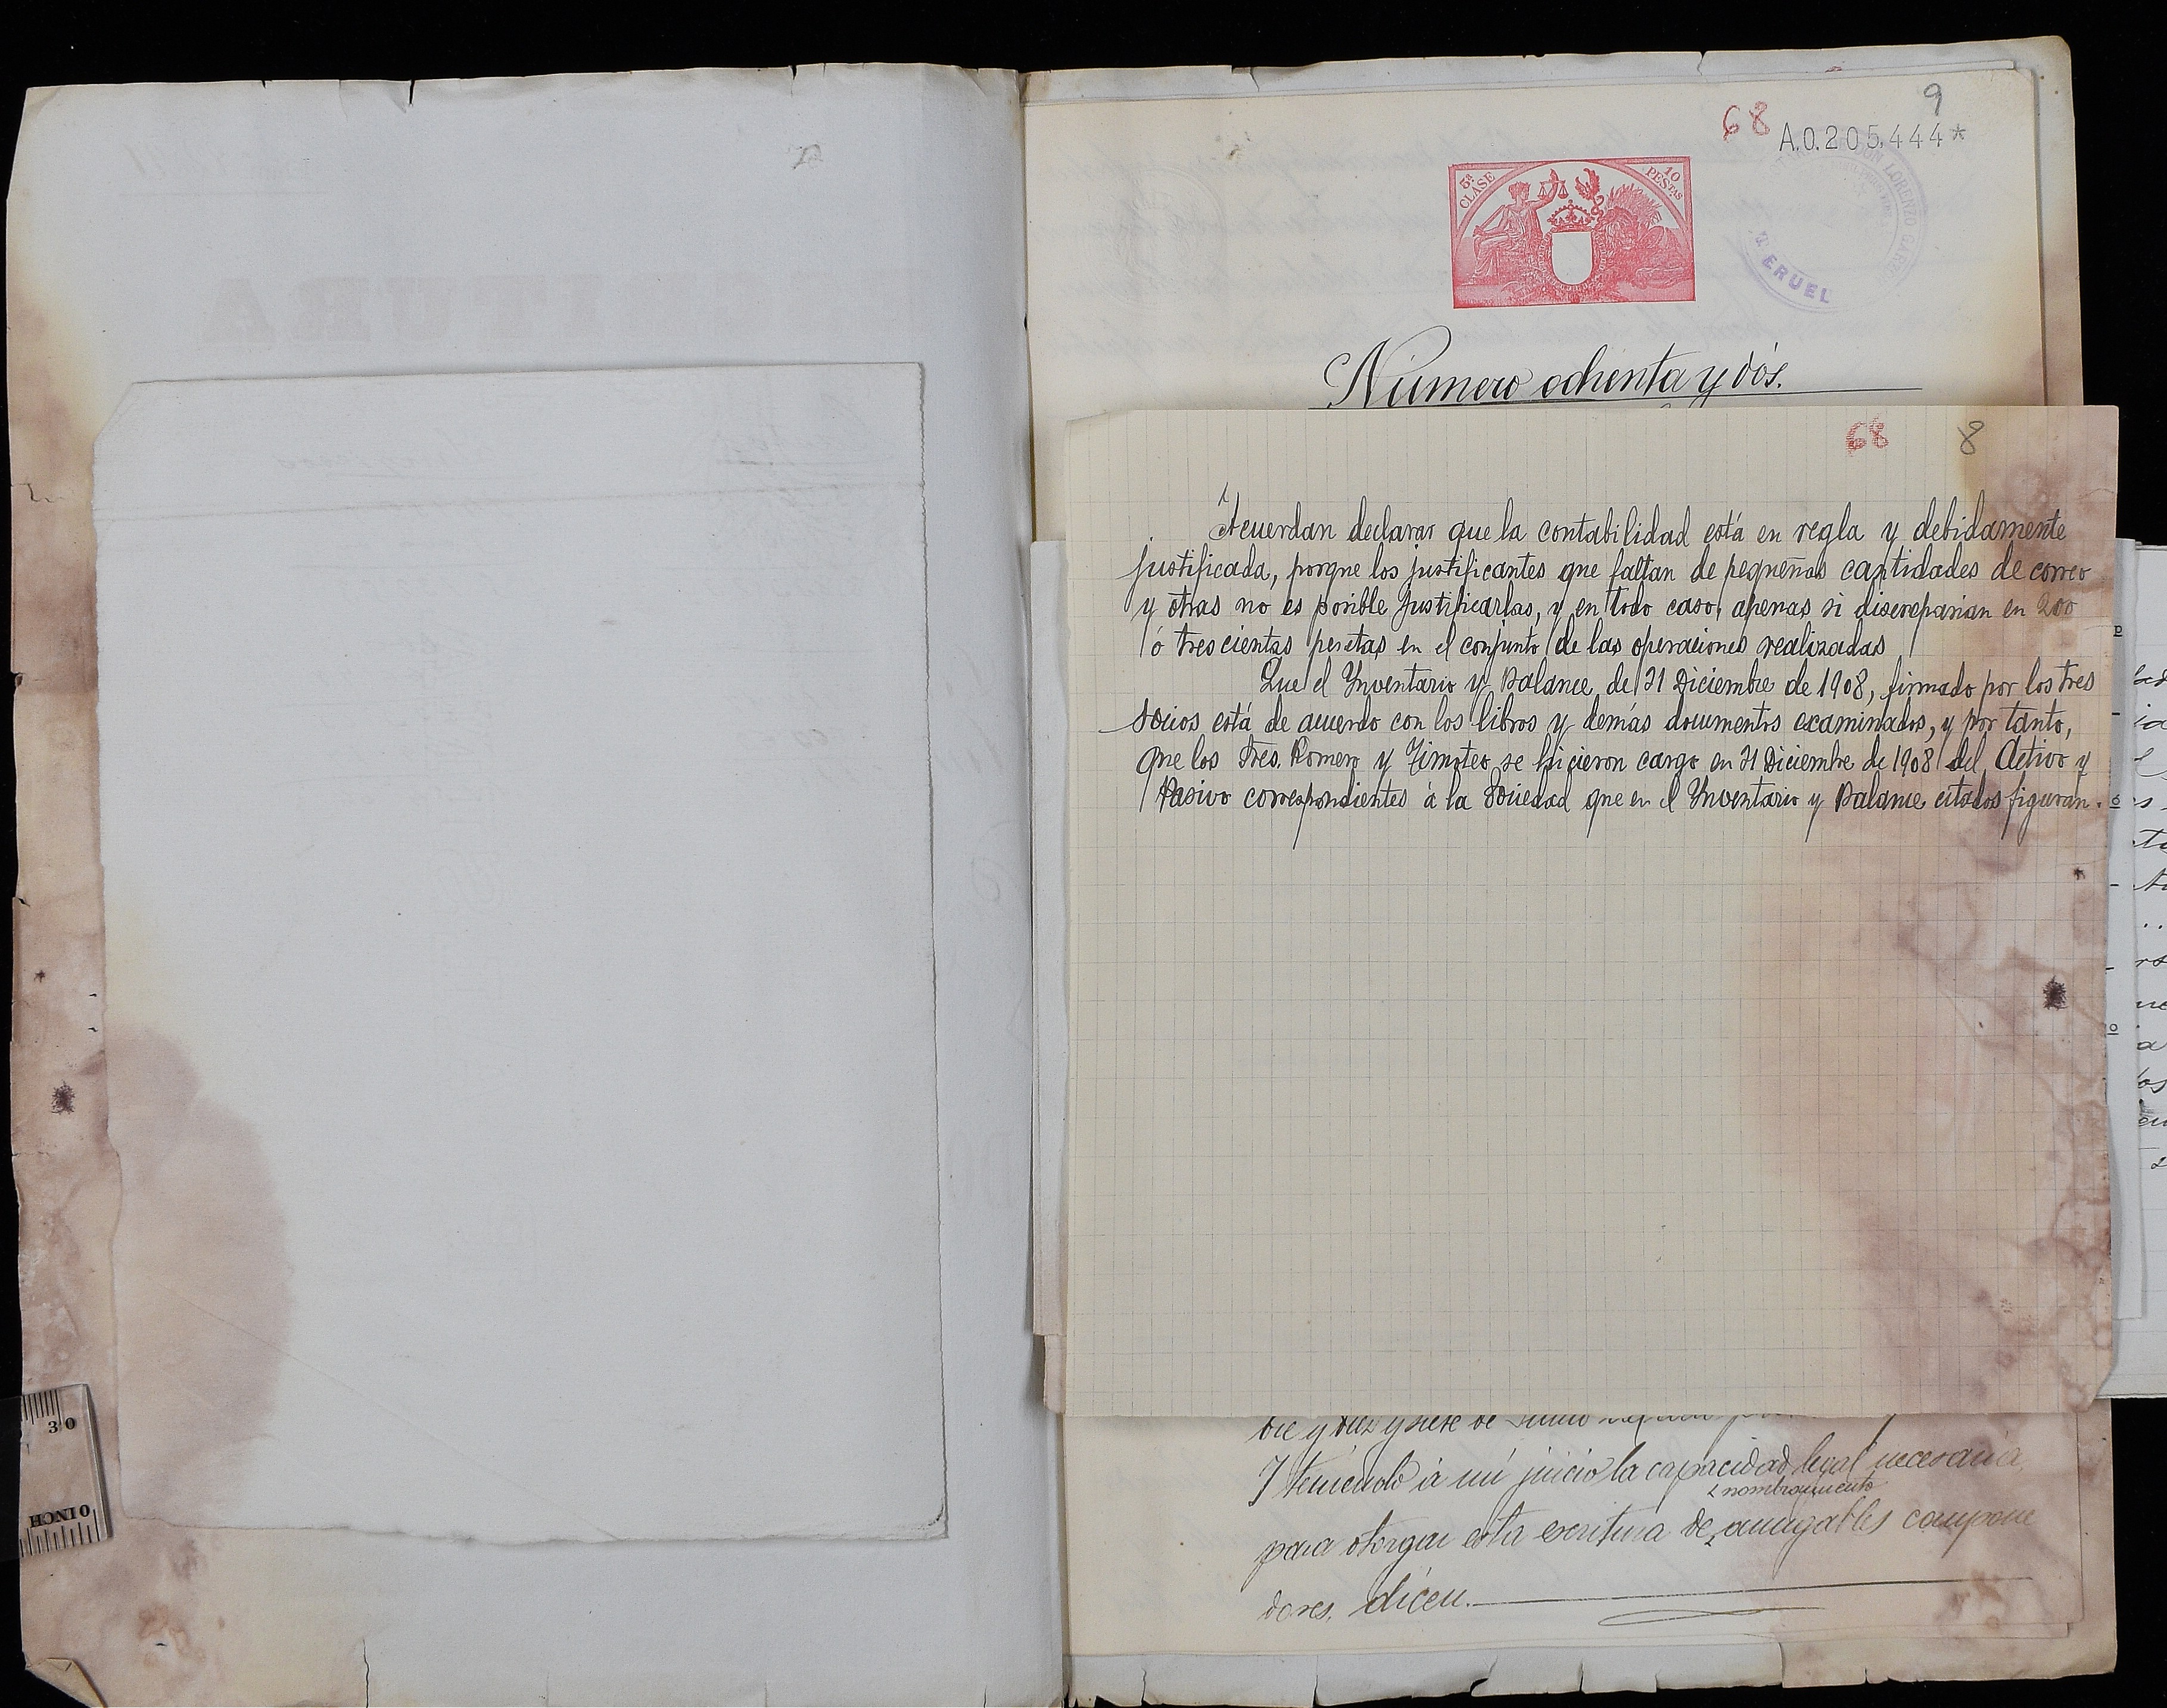 9
68 A.0.205.444*
5ª CLASE 10 PESTAS
DON LORENZO GARR
TERUEL
Número ochenta y dós.
68 8
Acuerdan declarar que la contabilidad está en regla y debidamente
justificada, porque los justificantes que faltan de pequeñas cantidades de correo
y otras no es posible justificarlas, y en todo caso, apenas si discreparian en 200
ó trescientas pesetas en el conjunto de las operaciones realizadas
Que el Ynventario y Balance de 31 Diciembre de 1908, firmado por los tres
socios está de acuerdo con los libros y demás documentos examinados, y por tanto,
que los Sres. Romero y Timoteo se hicieron cargo en 31 Diciembre de 1908 del Activo y
Pasivo correspondientes á la Sociedad que en el Ynventario y Balance citados figuran.
bre y diez y siete de
Y teniendo á mi juicio la capacidad legal necesaria
nombramiento
para otorgar esta escritura de amigables compone
dores, dicen.
30
0 INCH